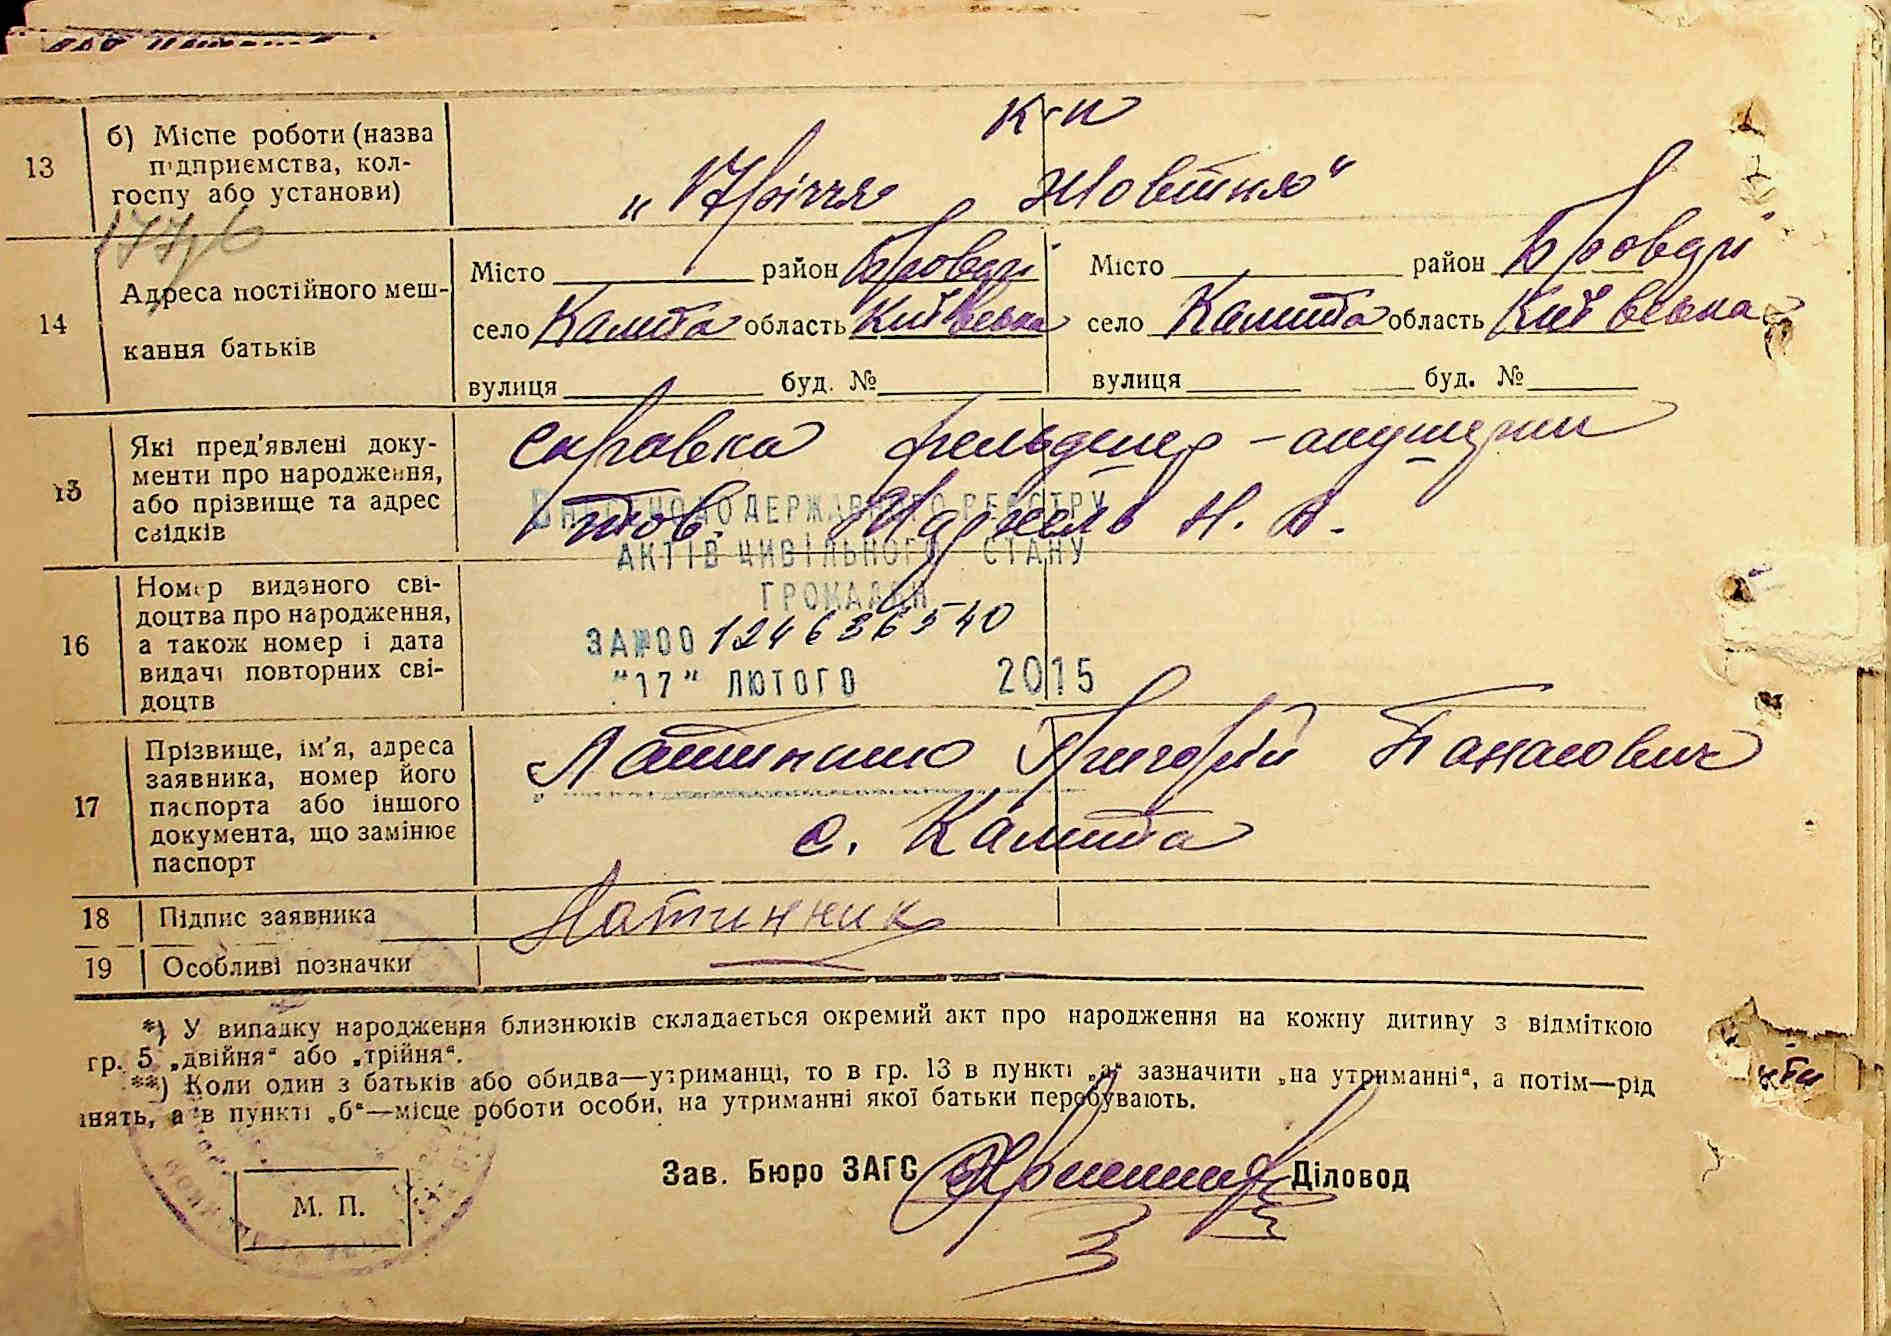 13 б) Місце роботи (назва
підприємства, кол-
госпу або установи)
к-п
„17 річчя Жовтня“
177/б
14 Адреса постійного меш-
кання батьків
Місто район Бровари
село Калита область Київська
вулиця буд. №
Місто район Бровари
село Калита область Київська
вулиця буд. №
15 Які пред'явлені доку-
менти про народження,
або прізвище та адрес
свідків
справка фельдшер-акушерки
тов. Н. А.
ВНЕСЕНО ДО ДЕРЖАВНОГО РЕЄСТРУ
АКТІВ ЦИВІЛЬНОГО СТАНУ
ГРОМАДЯН
16 Номер виданого сві-
доцтва про народження,
а також номер і дата
видачі повторних сві-
доцтв
ЗА №00124636540
"17" ЛЮТОГО 2015
17 Прізвище, ім'я, адреса
заявника, номер його
паспорта або іншого
документа, що замінює
паспорт
Латинник Григорій Панасович
с. Калита
18 Підпис заявника
Латинник
19 Особливі позначки
*) У випадку народження близнюків складається окремий акт про народження на кожну дитину з відміткою
гр. 5 „двійня“ або „трійня“.
**) Коли один з батьків або обидва—утриманці, то в гр. 13 в пункті „а“ зазначити „на утриманні“, а потім—рід
інять, а в пункті „б“—місце роботи особи, на утриманні якої батьки перебувають.
Зав. Бюро ЗАГС Діловод
М. П.